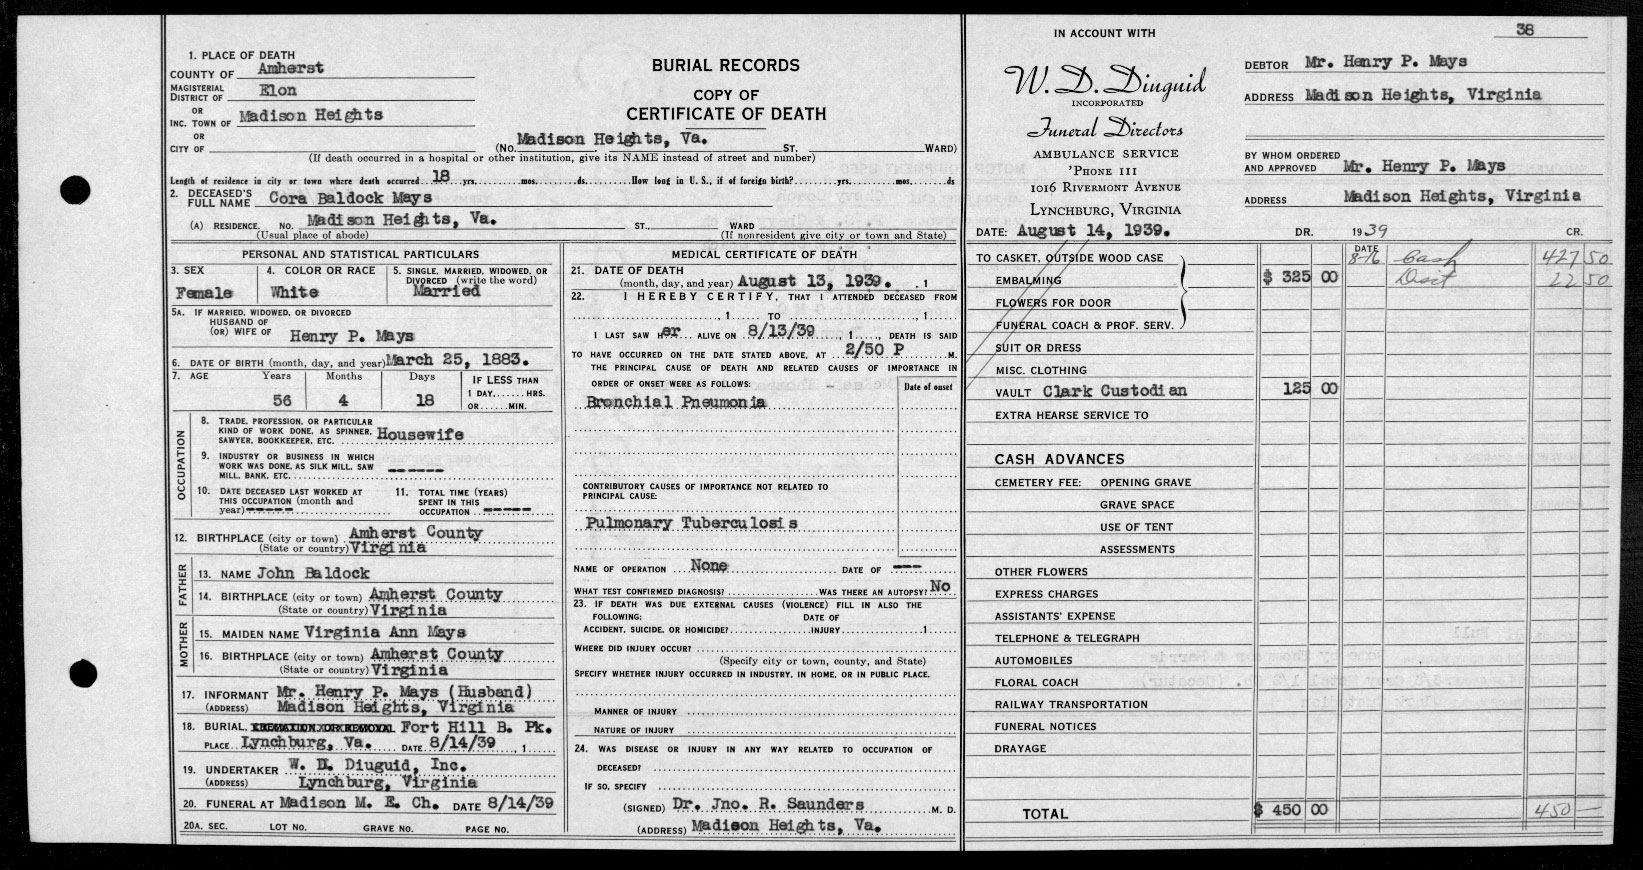 1. PLACE OF DEATH
COUNTY OF Amherst
MAGISTERIAL DISTRICT OF Elon
OR
INC. TOWN OF Madison Heights
OR
CITY OF
BURIAL RECORDS
COPY OF
CERTIFICATE OF DEATH
(No. Madison Heights, Va. ST. WARD)
(If death occurred in a hospital or other institution, give its NAME instead of street and number)
Length of residence in city or town where death occurred 18 yrs. mos. ds. How long in U. S., if of foreign birth? yrs. mos. ds
2. DECEASED'S FULL NAME Cora Baldock Mays
(A) RESIDENCE. NO. Madison Heights, Va. ST., WARD
(Usual place of abode) (If nonresident give city or town and State)
PERSONAL AND STATISTICAL PARTICULARS
3. SEX Female
4. COLOR OR RACE White
5. SINGLE, MARRIED, WIDOWED, OR DIVORCED (write the word) Married
5A. IF MARRIED, WIDOWED, OR DIVORCED
HUSBAND OF
(OR) WIFE OF Henry P. Mays
6. DATE OF BIRTH (month, day, and year) March 25, 1883.
7. AGE Years Months Days IF LESS THAN
1 DAY, HRS.
56 4 18 OR MIN.
OCCUPATION
8. TRADE, PROFESSION, OR PARTICULAR
KIND OF WORK DONE, AS SPINNER,
SAWYER, BOOKKEEPER, ETC. Housewife
9. INDUSTRY OR BUSINESS IN WHICH
WORK WAS DONE, AS SILK MILL, SAW
MILL, BANK, ETC. ------
10. DATE DECEASED LAST WORKED AT
THIS OCCUPATION (month and
year) -----
11. TOTAL TIME (YEARS)
SPENT IN THIS
OCCUPATION -----
12. BIRTHPLACE (city or town) Amherst County
(State or country) Virginia
FATHER
13. NAME John Baldock
14. BIRTHPLACE (city or town) Amherst County
(State or country) Virginia
MOTHER
15. MAIDEN NAME Virginia Ann Mays
16. BIRTHPLACE (city or town) Amherst County
(State or country) Virginia
17. INFORMANT Mr. Henry P. Mays (Husband)
(ADDRESS) Madison Heights, Virginia
18. BURIAL, CREMATION OR REMOVAL Fort Hill B. Pk.
PLACE Lynchburg, Va. DATE 8/14/39, 1
19. UNDERTAKER W. D. Diuguid, Inc.
(ADDRESS) Lynchburg, Virginia
20. FUNERAL AT Madison M. E. Ch. DATE 8/14/39
20A. SEC. LOT NO. GRAVE NO. PAGE NO.
MEDICAL CERTIFICATE OF DEATH
21. DATE OF DEATH
(month, day, and year) August 13, 1939. , 1
22. I HEREBY CERTIFY, THAT I ATTENDED DECEASED FROM
, 1 TO , 1
I LAST SAW H er ALIVE ON 8/13/39, 1 , DEATH IS SAID
TO HAVE OCCURRED ON THE DATE STATED ABOVE, AT 2/50 P M.
THE PRINCIPAL CAUSE OF DEATH AND RELATED CAUSES OF IMPORTANCE IN
ORDER OF ONSET WERE AS FOLLOWS: Date of onset
Bronchial Pneumonia
CONTRIBUTORY CAUSES OF IMPORTANCE NOT RELATED TO
PRINCIPAL CAUSE:
Pulmonary Tuberculosis
NAME OF OPERATION None DATE OF ---
WHAT TEST CONFIRMED DIAGNOSIS? WAS THERE AN AUTOPSY? No
23. IF DEATH WAS DUE EXTERNAL CAUSES (VIOLENCE) FILL IN ALSO THE
FOLLOWING: DATE OF
ACCIDENT, SUICIDE, OR HOMICIDE? INJURY 1
WHERE DID INJURY OCCUR?
(Specify city or town, county, and State)
SPECIFY WHETHER INJURY OCCURRED IN INDUSTRY, IN HOME, OR IN PUBLIC PLACE.
MANNER OF INJURY
NATURE OF INJURY
24. WAS DISEASE OR INJURY IN ANY WAY RELATED TO OCCUPATION OF
DECEASED?
IF SO, SPECIFY
(SIGNED) Dr. Jno. R. Saunders M. D.
(ADDRESS) Madison Heights, Va.
38
IN ACCOUNT WITH
W. D. Diuguid
INCORPORATED
Funeral Directors
AMBULANCE SERVICE
'PHONE 111
1016 RIVERMONT AVENUE
LYNCHBURG, VIRGINIA
DEBTOR Mr. Henry P. Mays
ADDRESS Madison Heights, Virginia
BY WHOM ORDERED
AND APPROVED Mr. Henry P. Mays
ADDRESS Madison Heights, Virginia
DATE: August 14, 1939. DR. 1939 CR.
TO CASKET, OUTSIDE WOOD CASE DATE 8-16 Cash 427 50
EMBALMING $ 325 00 Disct 22 50
FLOWERS FOR DOOR
FUNERAL COACH & PROF. SERV.
SUIT OR DRESS
MISC. CLOTHING
VAULT Clark Custodian 125 00
EXTRA HEARSE SERVICE TO
CASH ADVANCES
CEMETERY FEE: OPENING GRAVE
GRAVE SPACE
USE OF TENT
ASSESSMENTS
OTHER FLOWERS
EXPRESS CHARGES
ASSISTANTS' EXPENSE
TELEPHONE & TELEGRAPH
AUTOMOBILES
FLORAL COACH
RAILWAY TRANSPORTATION
FUNERAL NOTICES
DRAYAGE
TOTAL $ 450 00 450 —